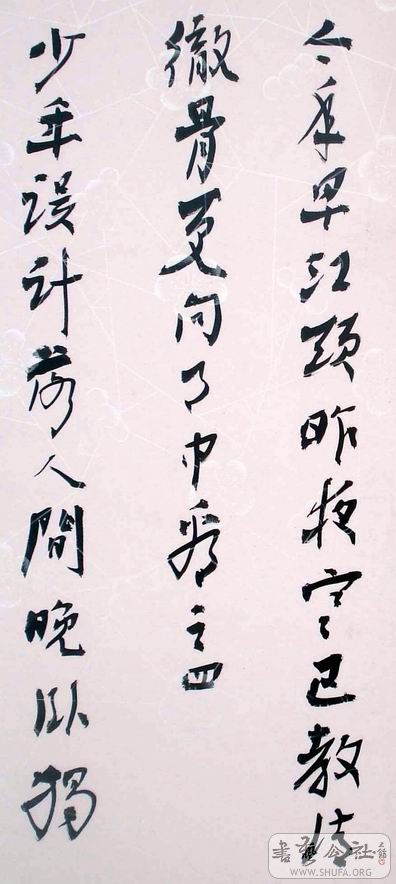 今年早江頭昨夜寒已教清
徹骨更向月中看之四
少年误计落人間晚卧獨
書藝公社
WWW.SHUFA.ORG